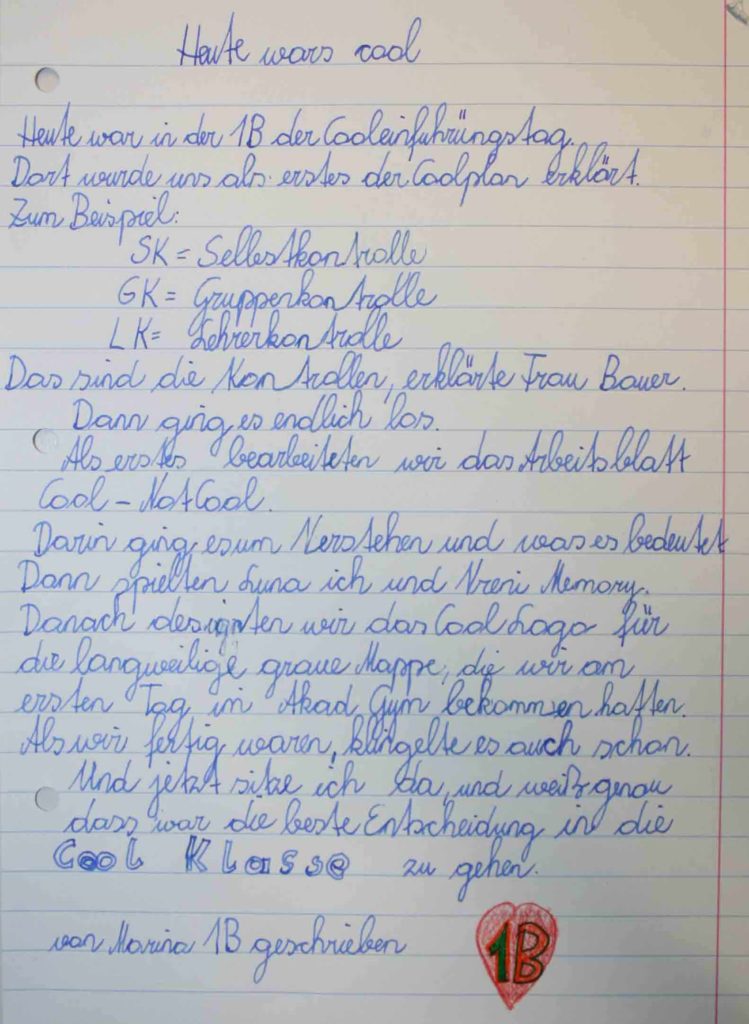 Heute wars cool
Heute war in der 1B der Cooleinführungstag.
Dort wurde uns als erstes der Coolplan erklärt.
Zum Beispiel:
SK = Selbstkontrolle
GK = Gruppenkontrolle
LK = Lehrerkontrolle
Das sind die Kontrollen, erklärte Frau Bauer.
Dann ging es endlich los.
Als erstes bearbeiteten wir das Arbeitsblatt
Cool - Not Cool.
Darin ging es um Verstehen und was es bedeutet
Dann spielten Luna ich und Vreni Memory.
Danach designten wir das Cool Logo für
die langweilige graue Mappe, die wir am
ersten Tag im Akad Gym bekommen hatten.
Als wir fertig waren, klingelte es auch schon.
Und jetzt sitze ich da, und weiß genau
dass war die beste Entscheidung in die
Cool Klasse zu gehen.
von Marina 1B geschrieben
1B